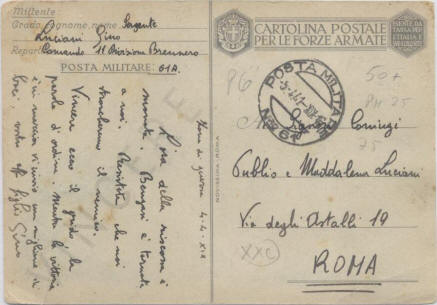 Mittente:
Grado, Cognome, nome Sergente
Luciani Gino
Reparto Comando 11 Divisione Brennero
POSTA MILITARE: 61A.
Zona di guerra 4-4-XIX
L'ora della riscossa è
suonata. Bengasi è tornata
a noi. Resistete che noi
stroncheremo il nemico.
Vincere ecco il grido la
parola d'ordine. Mentre la vittoria
è in marcia vi invio un migliore di
baci, vostro aff. figlio Gino
CARTOLINA POSTALE
PER LE FORZE ARMATE
ESENTE DA
TASSA PER
L'ITALIA E
POSTA MILITARE
5-4-41-XIX
N° 61
P6
50+
PM 25
25
Coniugi
Publio e Maddalena Luciani
Via degli Astalli 19
XXC
ROMA